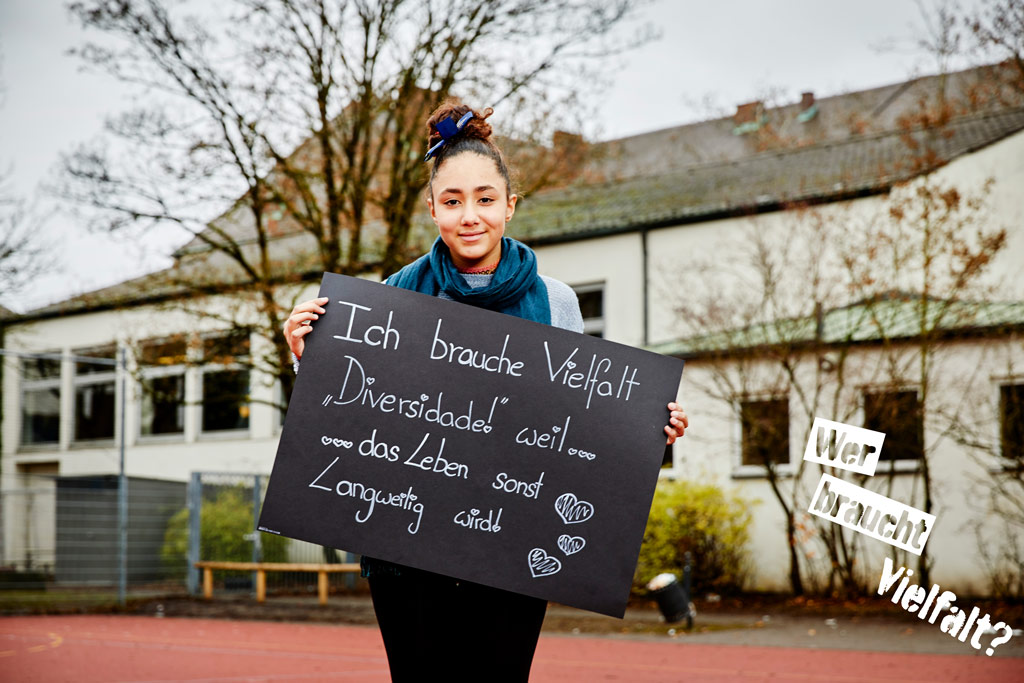 Ich brauche Vielfalt
„Diversidade!" weil...
...das Leben sonst
Langweilig wird!
Wer
braucht
Vielfalt?